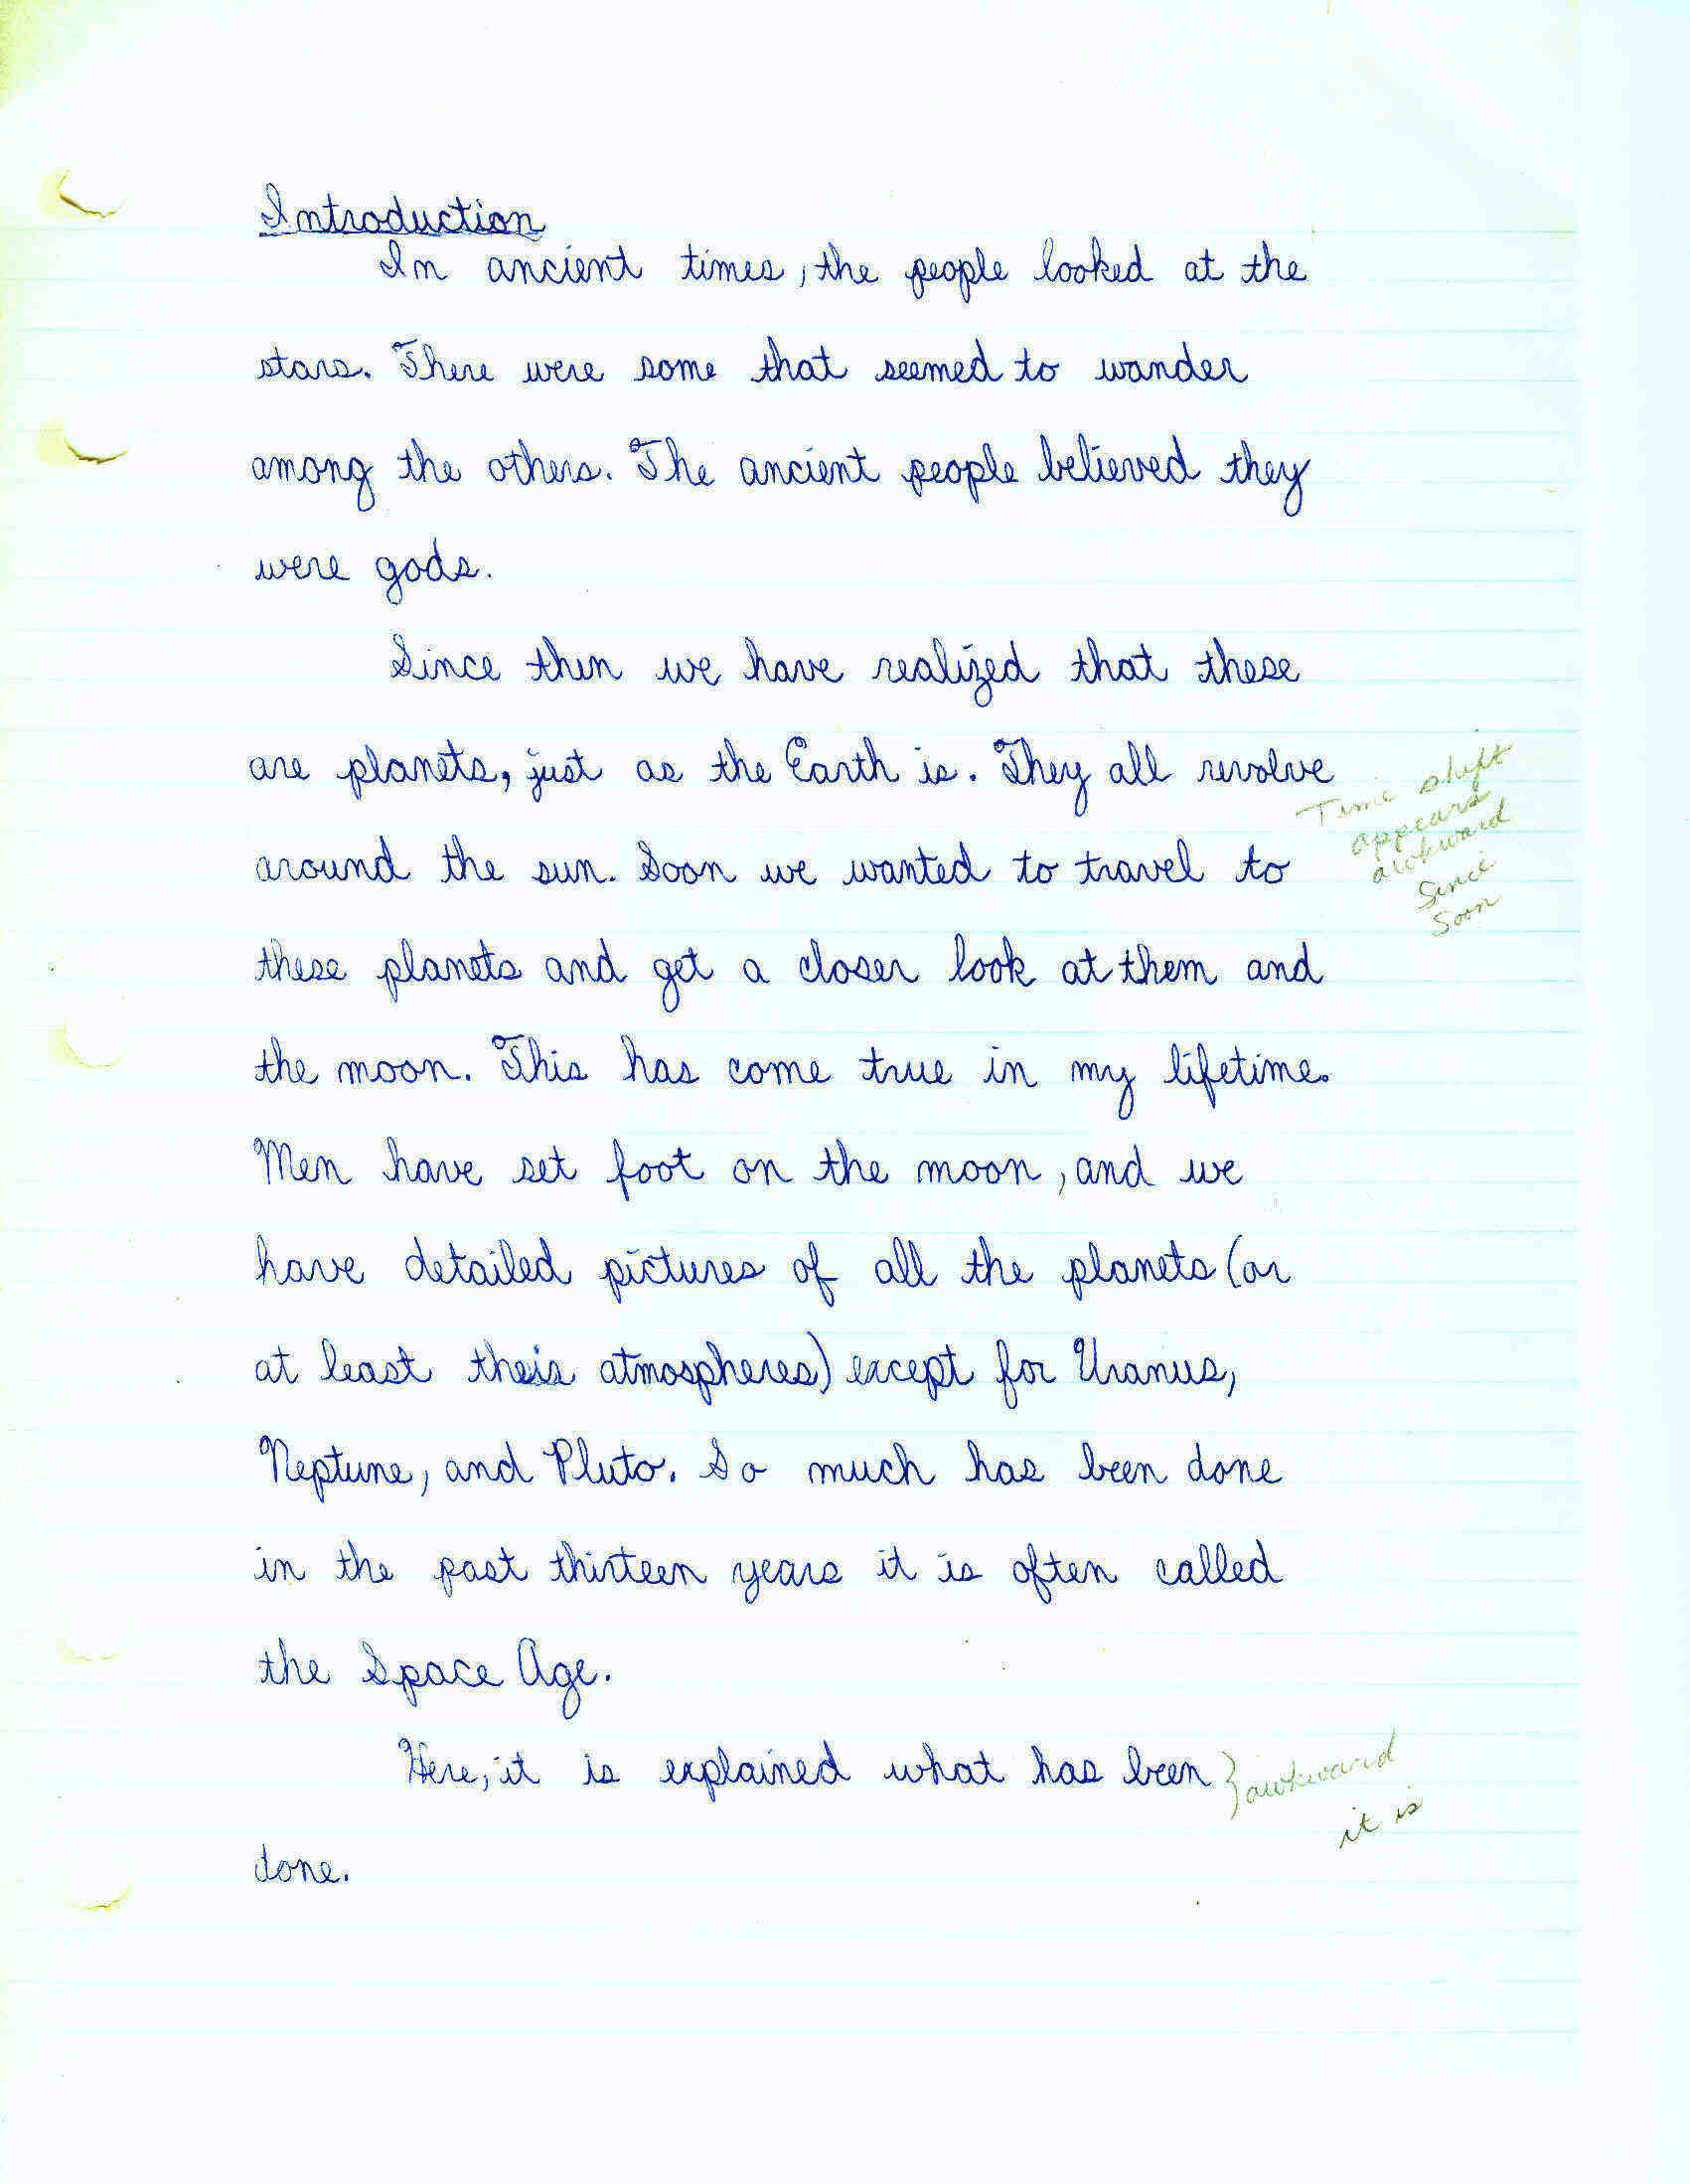 Introduction
In ancient times, the people looked at the
stars. There were some that seemed to wander
among the others. The ancient people believed they
were gods.
Since then we have realized that these
are planets, just as the Earth is. They all revolve
around the sun. Soon we wanted to travel to
these planets and get a closer look at them and
the moon. This has come true in my lifetime.
Men have set foot on the moon, and we
have detailed pictures of all the planets (or
at least their atmospheres) except for Uranus,
Neptune, and Pluto. So much has been done
in the past thirteen years it is often called
the Space Age.
Here, it is explained what has been
done.
Time shift
appears
awkward
Since
Soon
} awkward
it is